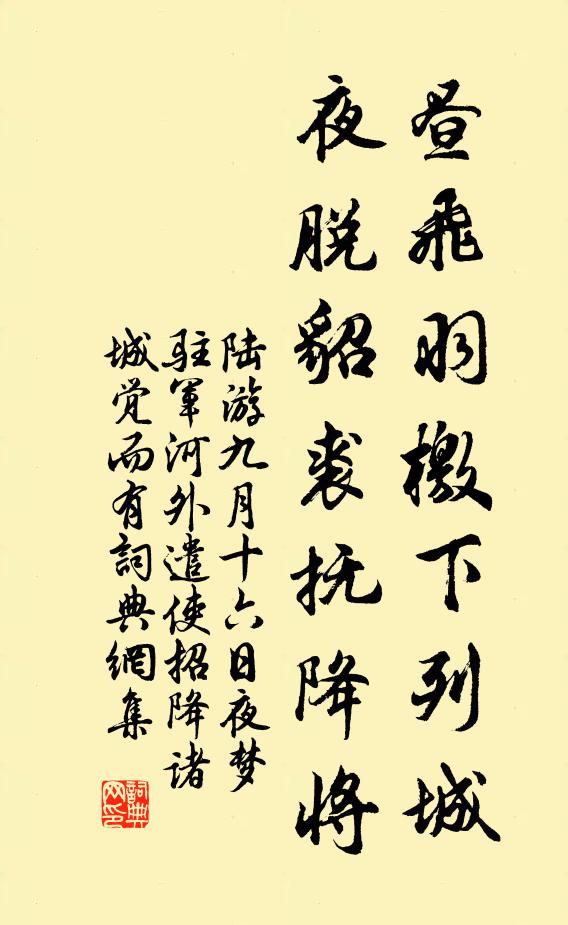 昼飛羽檄下列城
夜脱貂裘抚降将
陆游九月十六日夜梦
驻军河外遣使招降诸
城觉而有詞典網集
詞典
网印